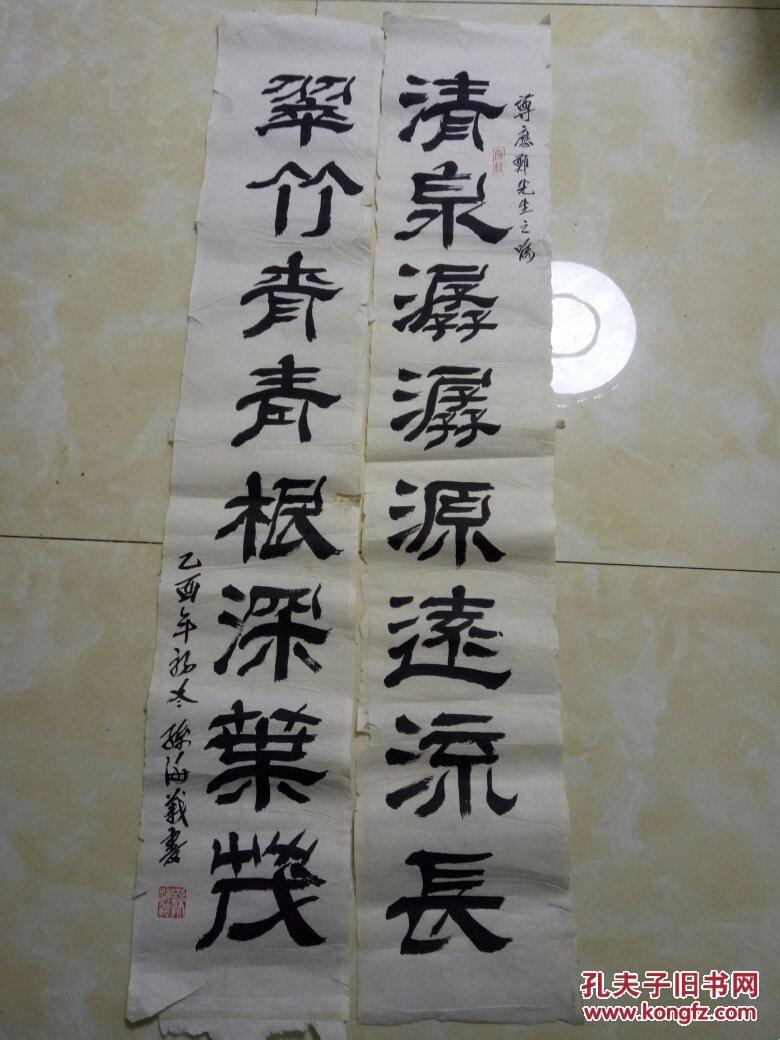 尊應鄭先生之嘱
清泉潺潺源遠流長
翠竹青青根深葉茂
乙酉年初冬孫海義書
孔夫子旧书网
www.kongfz.com